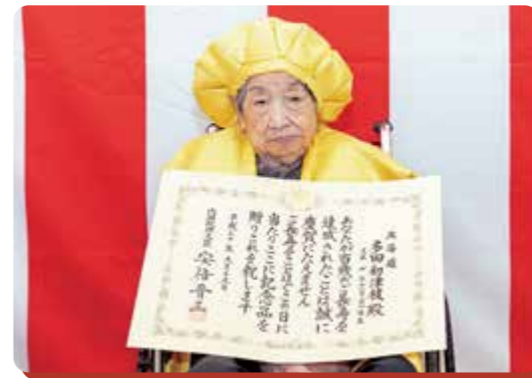 北海道
多田初津枝殿
あなたが百歳のご長寿を
達成されたことは誠に
慶賀にたえません
ご長寿をことほぐこの日に
当たりここに記念品を
贈りこれを祝します
内閣総理大臣 安倍晋三